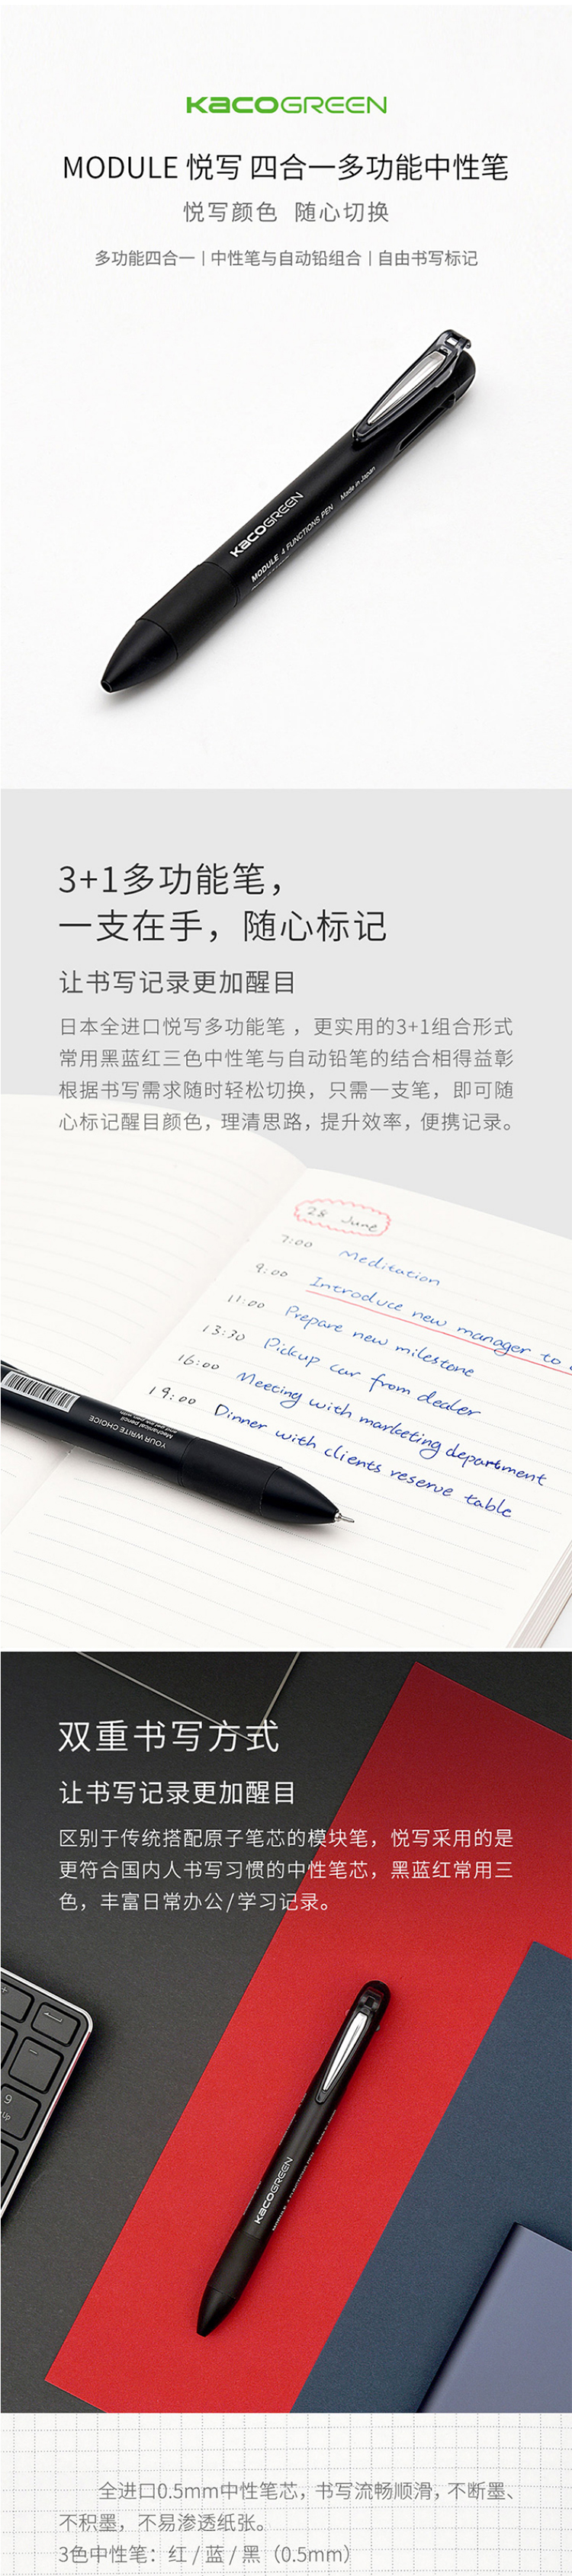 KACOGREEN
MODULE 悦写 四合一多功能中性笔
悦写颜色 随心切换
多功能四合一 | 中性笔与自动铅组合 | 自由书写标记
KACOGREEN
MODULE 4 FUNCTIONS PEN Made in Japan
3+1多功能笔，
一支在手，随心标记
让书写记录更加醒目
日本全进口悦写多功能笔，更实用的3+1组合形式
常用黑蓝红三色中性笔与自动铅笔的结合相得益彰
根据书写需求随时轻松切换，只需一支笔，即可随
心标记醒目颜色，理清思路，提升效率，便携记录。
28 June
7:00 Meditation
9:00 Introduce new manager to
11:00 Prepare new milestone
13:30 Pickup car from dealer
16:00 Meeting with marketing department
19:00 Dinner with clients reserve table
YOUR WRITE CHOICE
Mechanical pencil
双重书写方式
让书写记录更加醒目
区别于传统搭配原子笔芯的模块笔，悦写采用的是
更符合国内人书写习惯的中性笔芯，黑蓝红常用三
色，丰富日常办公/学习记录。
9
KACOGREEN
全进口0.5mm中性笔芯，书写流畅顺滑，不断墨、
不积墨，不易渗透纸张。
3色中性笔：红 / 蓝 / 黑（0.5mm）